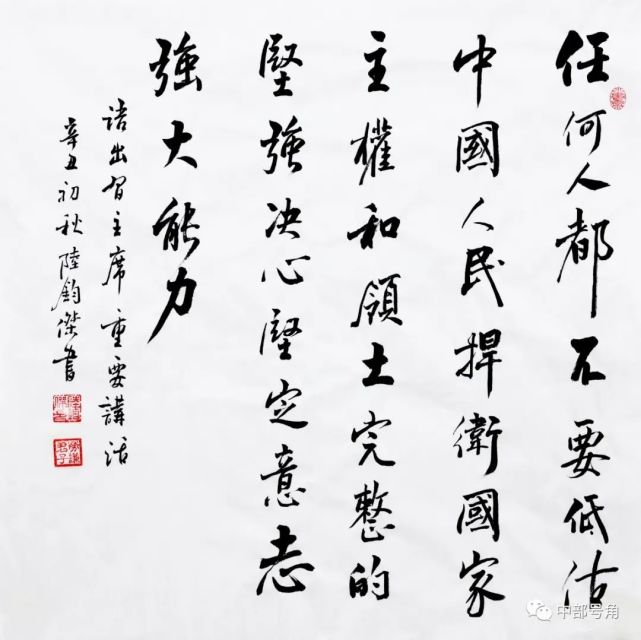 任何人都不要低估
中國人民捍衛國家
主權和領土完整的
堅強决心堅定意志
強大能力
語出習主席重要講話
辛丑初秋陸鈞傑書
中部号角